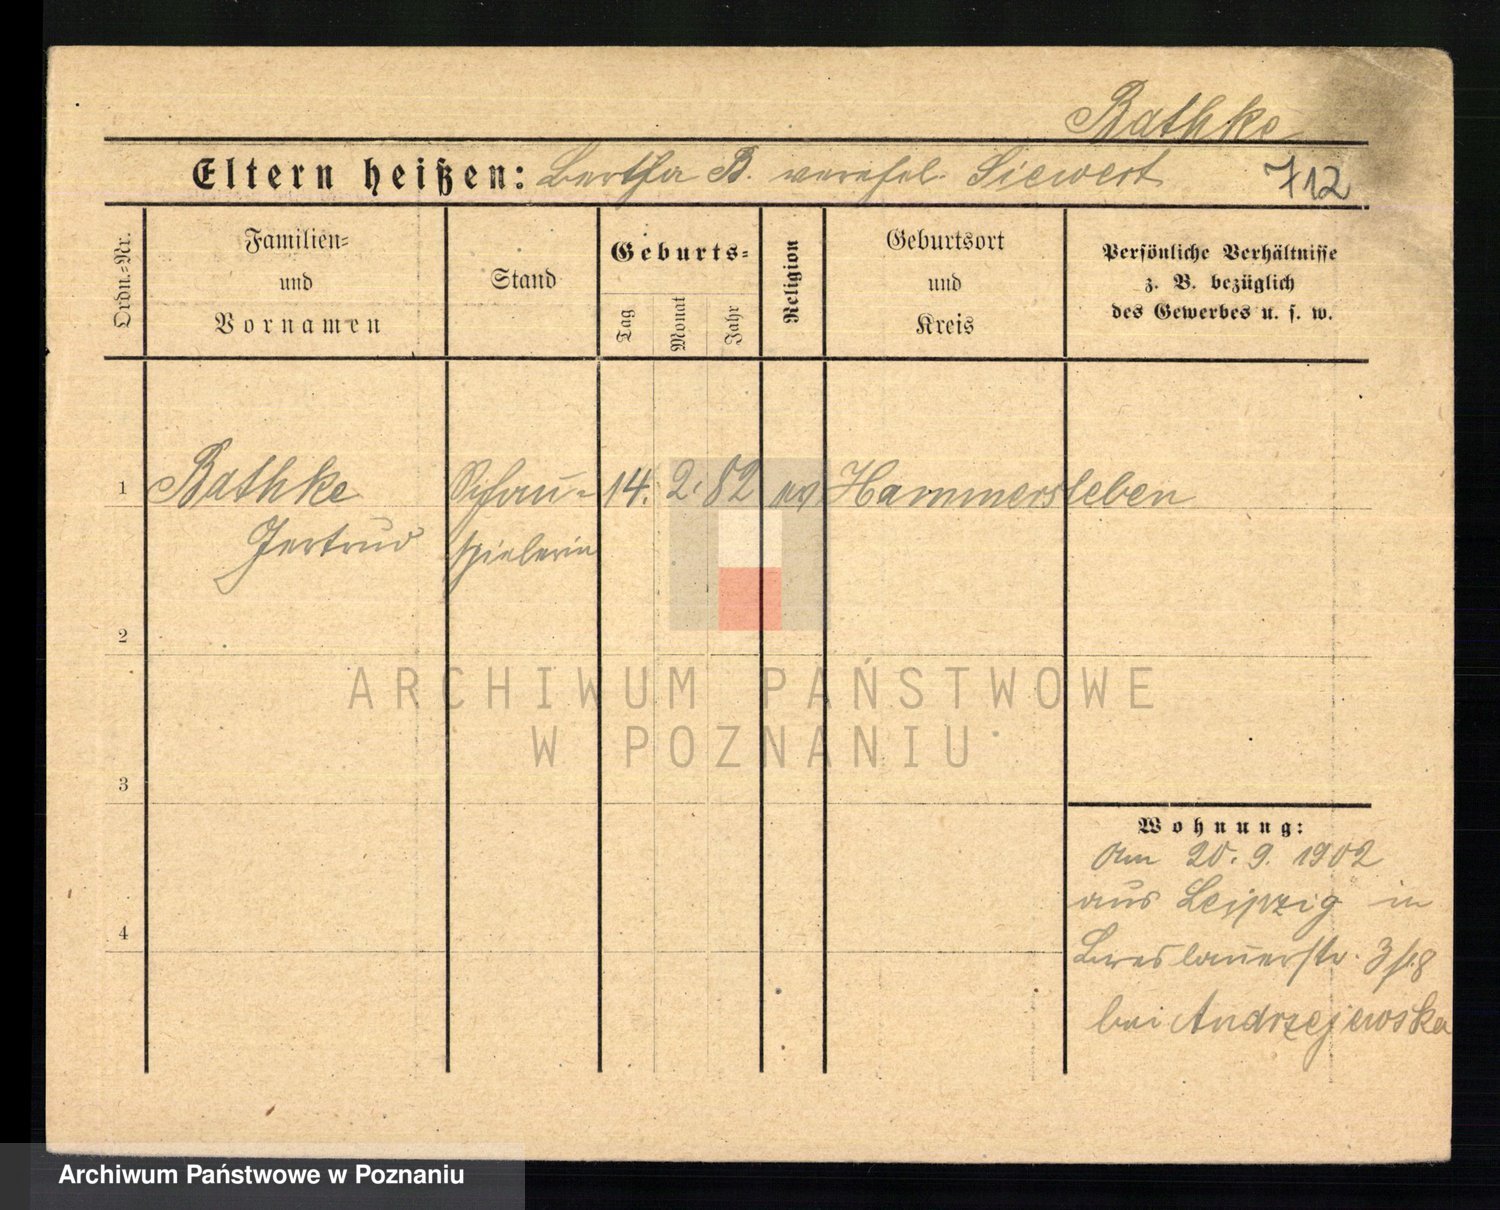 Rathke
Eltern heißen: Bertha B. verehel. Siewert 712
Ordn.-Nr.
Familien-
und
Vornamen
Stand
Geburts-
Tag
Monat
Jahr
Religion
Geburtsort
und
Kreis
Persönliche Verhältnisse
z. B. bezüglich
des Gewerbes u. s. w.
1 Rathke Schau- 14. 2. 82 ev Hammersleben
Gertrud spielerin
2
ARCHIWUM PAŃSTWOWE
W POZNANIU
3
Wohnung:
Am 20. 9. 1902
aus Leipzig in
4
Breslauerstr.
bei Andrzejewska
Archiwum Państwowe w Poznaniu